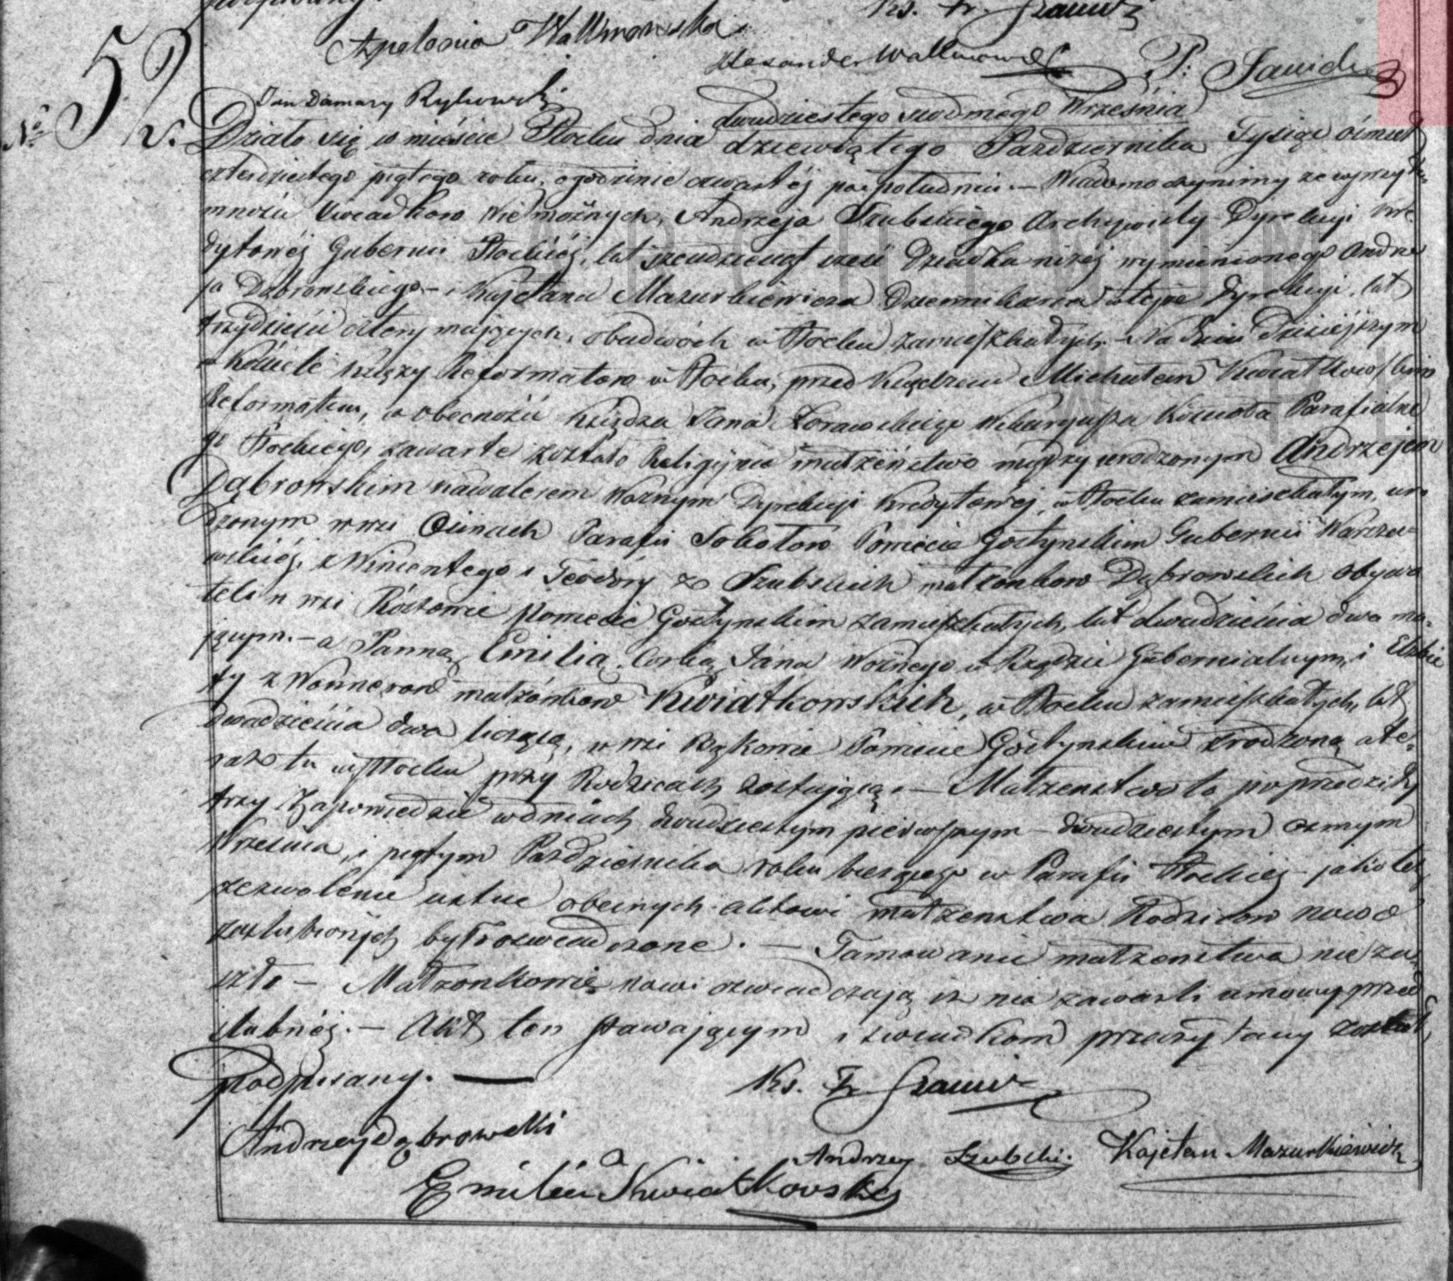 Apolonia Wallmowska
Ks. Fr.
Alexander Wallmow
P. Janick
No 52.
Jan Damazy Rykowski
dwudziestego siódmego Września
Działo się w mieście Płocku dnia dziewiątego Pazdziernika Tysiąc ośmset
czterdziestego piątego roku, o godzinie czwartéj po południu. — Wiadomo czynimy ze w przyto-
mności Swiadkow Wielmożnych, Andrzeja Szubskiego Archiwisty Dyrekcyi Kre
dytowéj Gubernii Płockiéj, lat szesdziesiąt Dziadka niżéj wymienionego Andrze
ja Dąbrowskiego — i Kajetana Mazurkiewicza Dziennikarza w tejże Dyrekcyi, lat
trzydzieści cztery mających, obudwóch w Płocku zamieszkałych — Na dniu Dzisiejszym
w Kościele Księży Reformatow w Płocku, przed Księdzem Michałem Kwiatkowskim
Reformatem, w obecności Księdza Jana Wikaryusza Kościoła Parafialne
go Płockiego, zawarte zostało Religijne małżeństwo między urodzonym Andrzejem
Dąbrowskim kawalerem Woznym Dyrekcyi Kredytowéj, w Płocku zamieszkałym, uro
dzonym we wsi Osinach Parafii Sokołow Powiecie Gostynskim Gubernii Warsza-
wskiéj, z Wincentego i Teodory z Szubskich małzonkow Dąbrowskich obywa
teli w wsi Powiecie Gostynskim zamieszkałych, lat dwadzieścia dwa ma-
jącym. — a Panną Emilią, Corką Jana Woźnego w Rządzie Gubernialnym, i Elżbie
ty z Wonnerow małżonkow Kwiatkowskich, w Płocku zamieszkałych, lat
dwadzieścia dwa liczącą, w wsi Rąkowie Powiecie Gostynskim zrodzoną a te-
raz tu w Płocku przy Rodzicach zostającą. — Małzenstwo to poprzedziły
trzy Zapowiedzie w dniach dwudziestym pierwszym — dwudziestym osmym
Września, i piątym Pazdziernika roku bieżącego w Parafii Płockiej — jako też
zezwolenie ustne obecnych aktowi małzenstwa Rodzicow nowo
zaślubionych było oswiadczone. — Tamowanie małzenstwa nie za
szło — Małzonkowie nowi oswiadczają iż nie zawarli umowy przed
slubnéj. — Akt ten stawającym i swiadkom przeczytany został,
podpisany. —
Ks. Fr.
Andrzej Dąbrowski
Andrzej Szubski.
Kajetan Mazurkiewicz
Emilia Kwiatkowska